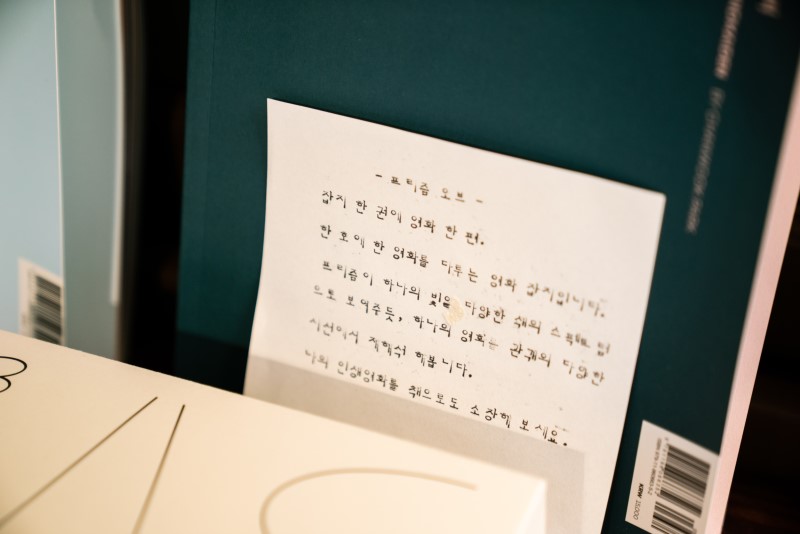 - 프리즘 오브 -
잡지 한 권에 영화 한 편.
한 호에 한 영화를 다루는 영화 잡지입니다.
프리즘이 하나의 빛을 다양한 색의 스펙트럼
으로 보여주듯, 하나의 영화는 관객의 다양한
시선에서 재해석 해봅니다.
나의 인생영화를 책으로도 소장해 보세요.
KRW 15000